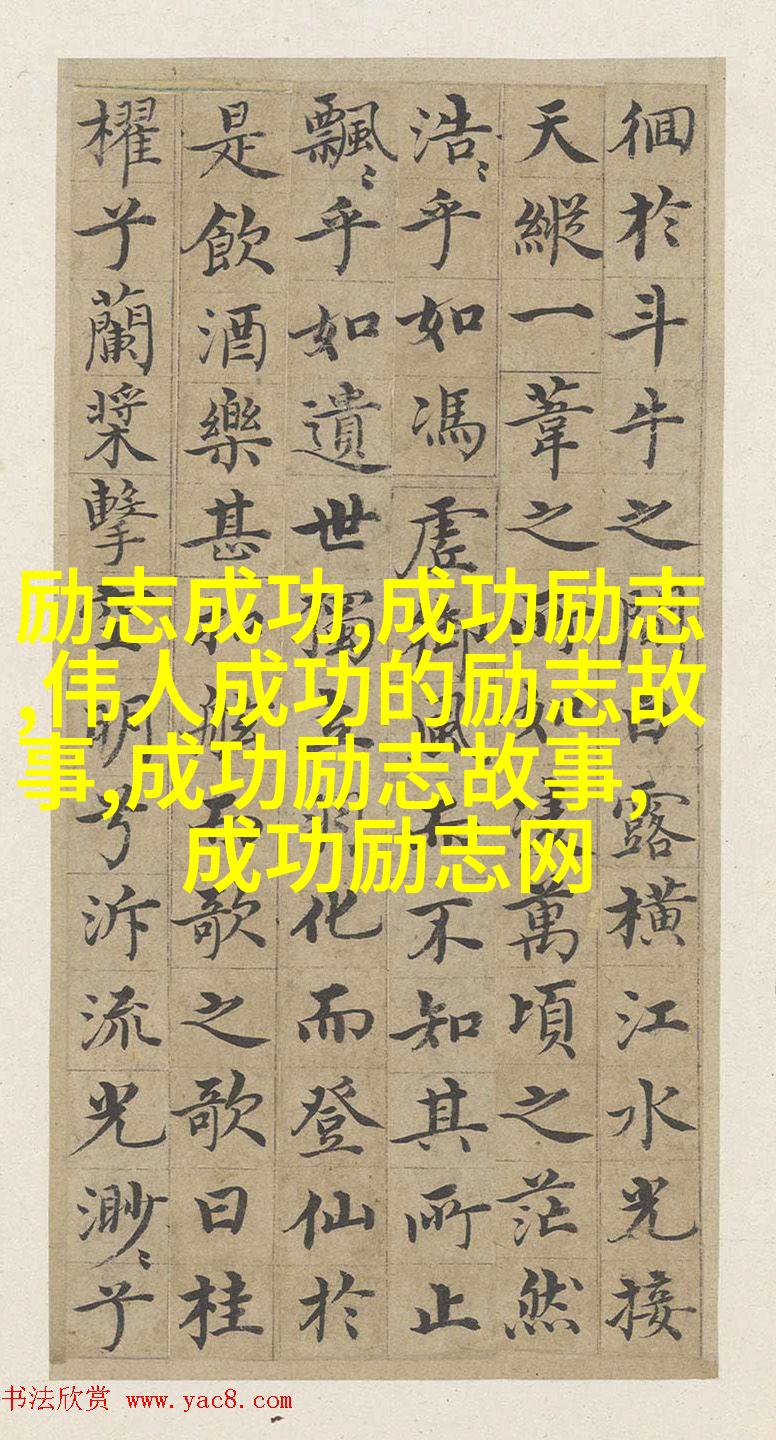 徊於斗牛之間白露橫江水光接
天縱一葦之所如凌萬頃之茫然
浩〻乎如馮虛御風而不知其所止
飄〻乎如遺世獨立羽化而登仙於
是飲酒樂甚扣舷而歌之歌曰桂
櫂兮蘭槳擊空明兮泝流光渺〻兮
励志成功,成功励志
,伟人成功的励志故
事,成功励志故事,
成功励志网
书法欣赏 www.yac8.com